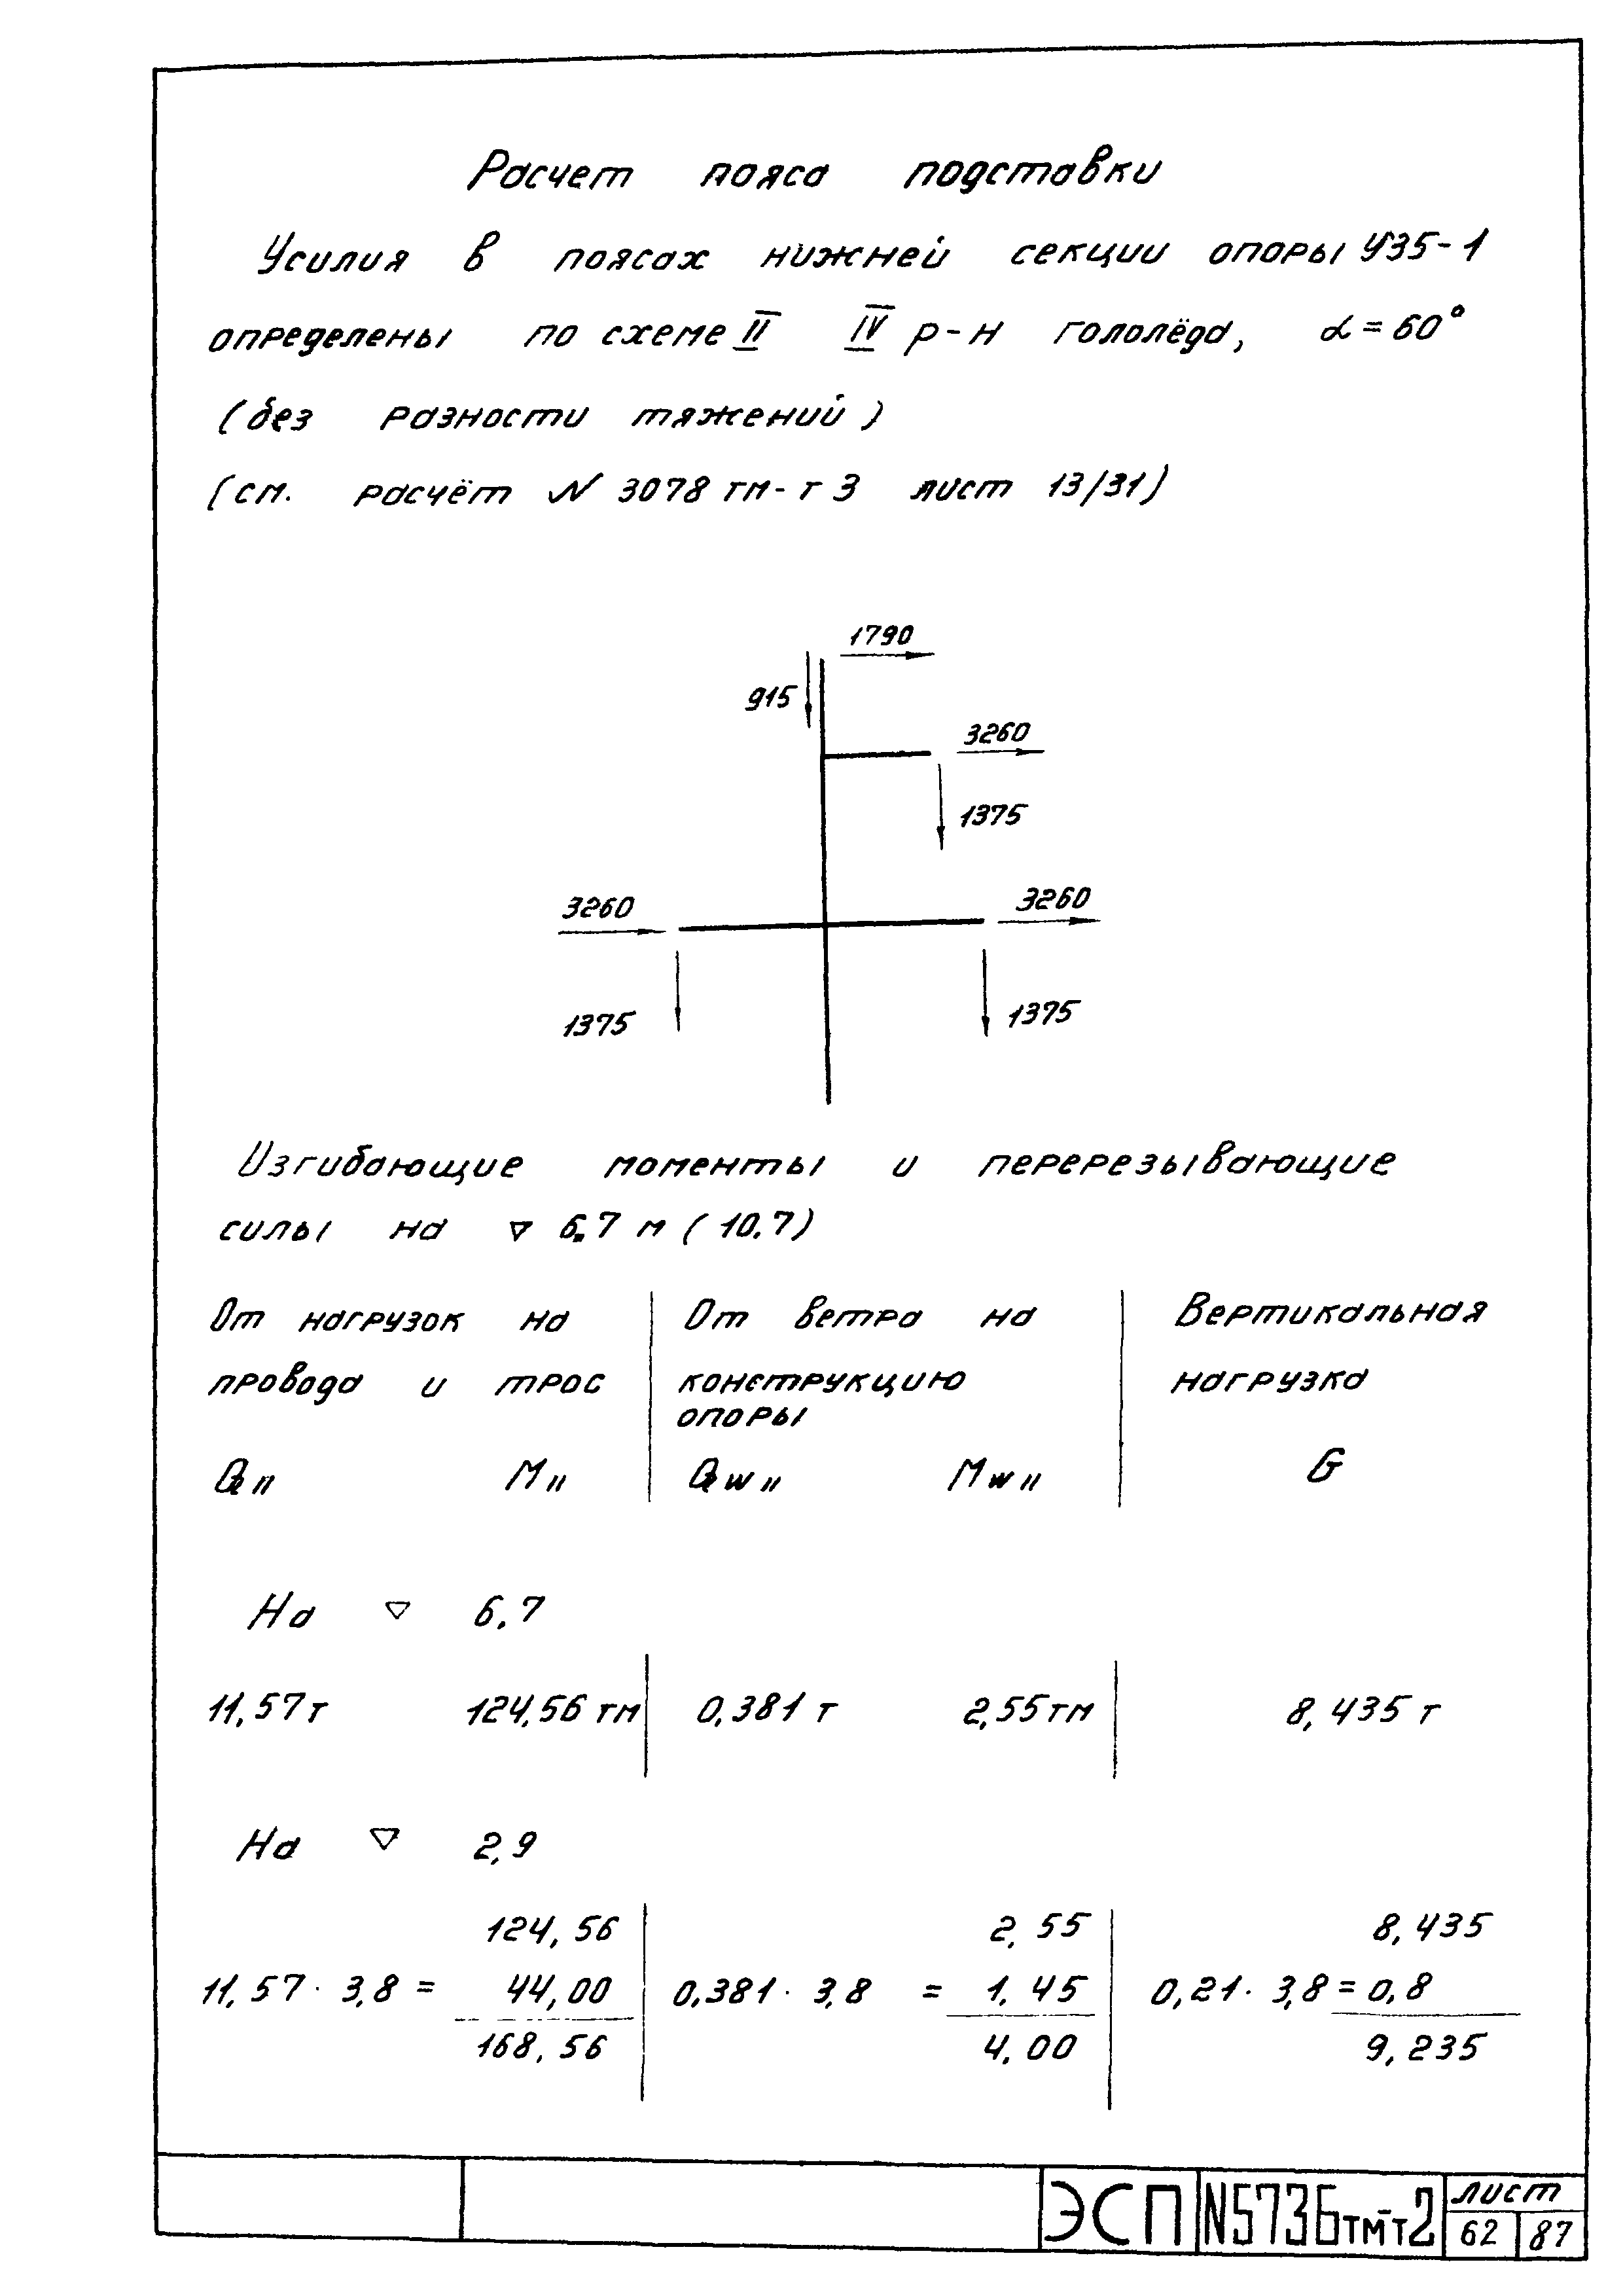 Расчет пояса подставки
Усилия в поясах нижней секции опоры У35-1
определены по схеме II IV р-н гололёда, α = 60°
(без разности тяжений)
(см. расчёт N 3078 тм-т 3 лист 13/31)
1790
915
3260
1375
3260
3260
1375
1375
Изгибающие моменты и перерезывающие
силы на ▽ 6.7 м (10.7)
От нагрузок на
провода и трос
От ветра на
конструкцию
опоры
Вертикальная
нагрузка
Q II M II Q W II M W II G
На ▽ 6.7
11,57 т 124,56 тм 0,381 т 2,55 тм 8,435 т
На ▽ 2,9
124,56 2,55 8,435
11,57 · 3,8 = 44,00 0,381 · 3,8 = 1,45 0,21 · 3,8 = 0,8
168,56 4,00 9,235
ЭСП N5736тм-т2 лист
62 87